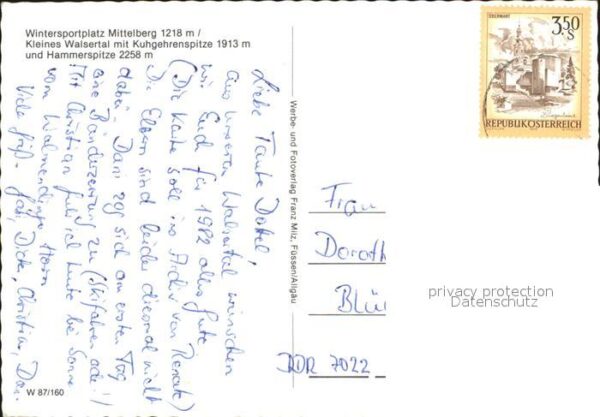 Wintersportplatz Mittelberg 1218 m /
Kleines Walsertal mit Kuhgehrenspitze 1913 m
und Hammerspitze 2258 m
Liebe Tante Dottel,
aus unserem Walsertal wünschen
wir Euch für 1982 alles Gute.
(Die Karte soll ins Archiv von Renate)
Die Eltern sind leider diesmal nicht
dabei. Dani zog sich am ersten Tag
eine Bänderzerrung zu (Skifahren ade!)
Mit Christian fuhr ich heute bei Sonne
vom Walmendinger Horn
Viele Grüße Gabi, Dick, Christian, Dani
W 87/160
Werbe und Fotoverlag Franz Milz, Füssen/Allgäu
3,50 S
REPUBLIK ÖSTERREICH
Frau
Doroth
Blü
DDR 7022
privacy protection
Datenschutz